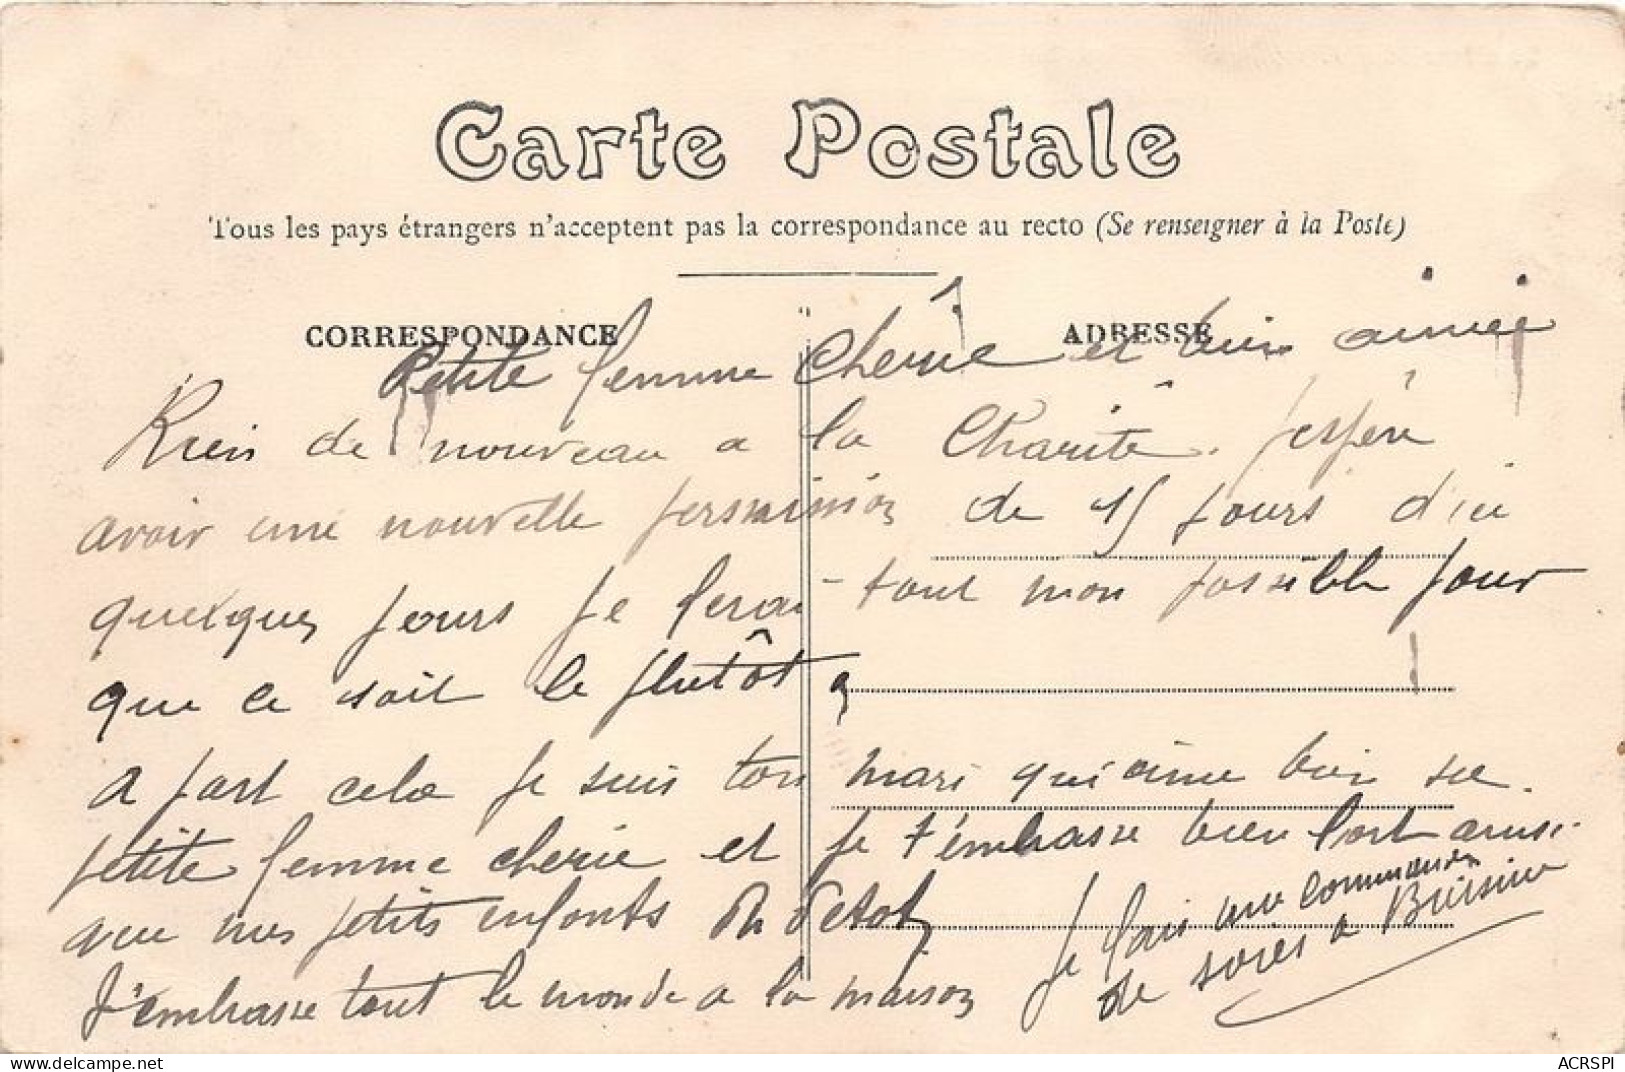 Carte Postale
Tous les pays étrangers n'acceptent pas la correspondance au recto (Se renseigner à la Poste)
CORRESPONDANCE
ADRESSE
Petite femme cherie et bien aimée
Rien de nouveau a la Charité. J'espére
avoir une nouvelle permission de 15 jours d'ici
quelques jours je ferai tout mon possible pour
que ce soit le plutôt,
a part cela je suis ton mari qui aime bien sa
petite femme cherie et je t'embrasse bien fort ainsi
que mes petits enfants
J'embrasse tout le monde a la maison
Je fais une commande
de soies a
www.delcampe.net
ACRSPI